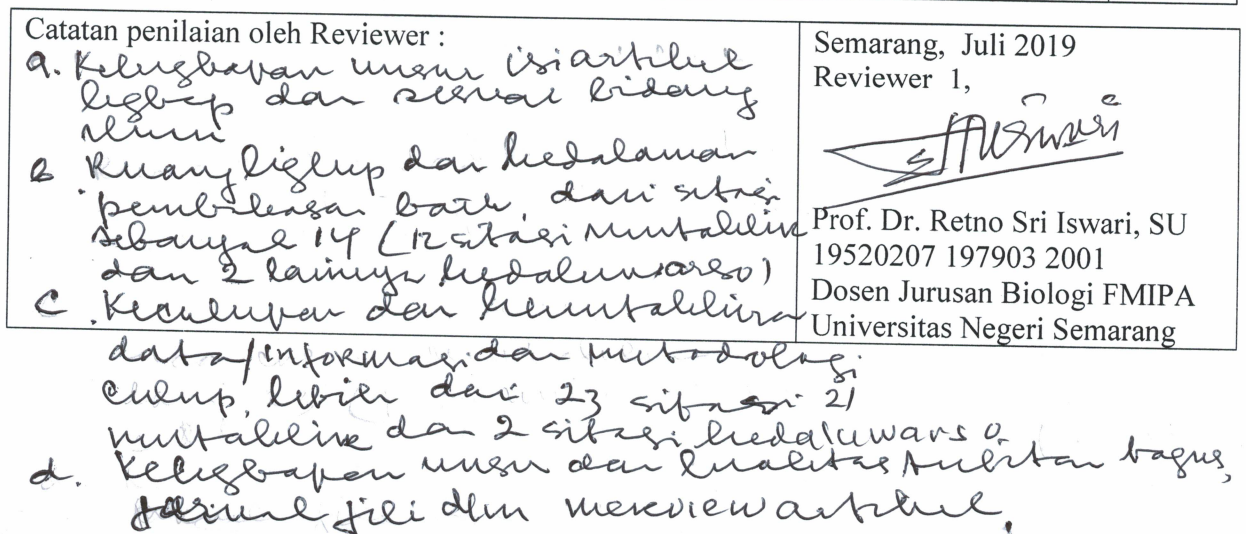 Catatan penilaian oleh Reviewer :
a. Kelengkapan unsur isi artikel
lengkap dan sesuai bidang
ilmu
b. Ruang lingkup dan kedalaman
pembahasan baik, dari sitasi
sebanyak 14 (12 sitasi mutakhir
dan 2 lainnya kedaluwarso)
c. Kecukupan dan kemutakhiran
data/informasi dan metodologi
cukup, lebih dari 23 sitasi 21
mutakhir dan 2 sitasi kedaluwarso.
d. Kelengkapan unsur dan kualitas terbitan bagus,
jurnal jili dlm mereview artikel.
Semarang, Juli 2019
Reviewer 1,
Prof. Dr. Retno Sri Iswari, SU
19520207 197903 2001
Dosen Jurusan Biologi FMIPA
Universitas Negeri Semarang